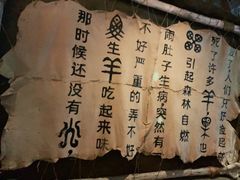 那时候还没有
生羊吃起来味
不好严重的弄不好
闹肚子生病,突然有
引起森林自燃
死了许多羊 也
了人们只好捡起